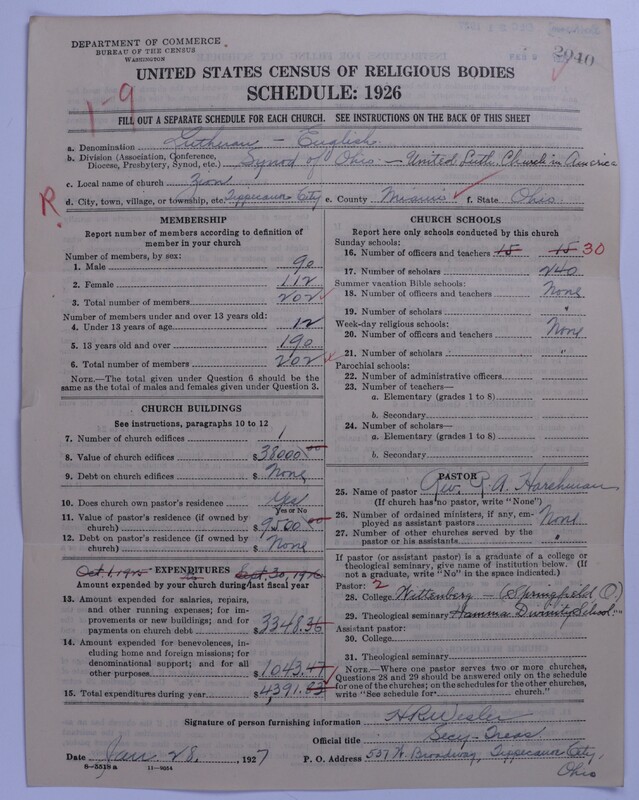 DEPARTMENT OF COMMERCE
BUREAU OF THE CENSUS
WASHINGTON
2940
UNITED STATES CENSUS OF RELIGIOUS BODIES
SCHEDULE: 1926
1-9
FILL OUT A SEPARATE SCHEDULE FOR EACH CHURCH. SEE INSTRUCTIONS ON THE BACK OF THIS SHEET
a. Denomination Lutheran - English
b. Division (Association, Conference, Diocese, Presbytery, Synod, etc.) Synod of Ohio - United Luth. Church in America
c. Local name of church Zion
R
d. City, town, village, or township, etc. Tippecanoe City e. County Miami f. State Ohio
MEMBERSHIP
Report number of members according to definition of member in your church
Number of members, by sex:
1. Male 90
2. Female 112
3. Total number of members 202
Number of members under and over 13 years old:
4. Under 13 years of age 12
5. 13 years old and over 190
6. Total number of members 202
NOTE.—The total given under Question 6 should be the same as the total of males and females given under Question 3.
CHURCH BUILDINGS
See instructions, paragraphs 10 to 12
7. Number of church edifices 1
8. Value of church edifices $38000.00
9. Debt on church edifices $None
10. Does church own pastor's residence Yes
Yes or No
11. Value of pastor's residence (if owned by church) $9500.00
12. Debt on pastor's residence (if owned by church) $None
EXPENDITURES
Amount expended by your church during last fiscal year
13. Amount expended for salaries, repairs, and other running expenses; for improvements or new buildings; and for payments on church debt $3348.36
14. Amount expended for benevolences, including home and foreign missions; for denominational support; and for all other purposes $1043.47
15. Total expenditures during year $4391.83
CHURCH SCHOOLS
Report here only schools conducted by this church
Sunday schools:
16. Number of officers and teachers 15 15 30
17. Number of scholars 240
Summer vacation Bible schools:
18. Number of officers and teachers None
19. Number of scholars "
Week-day religious schools:
20. Number of officers and teachers None
21. Number of scholars "
Parochial schools:
22. Number of administrative officers
23. Number of teachers—
a. Elementary (grades 1 to 8)
b. Secondary
24. Number of scholars—
a. Elementary (grades 1 to 8)
b. Secondary
PASTOR
25. Name of pastor Rev. R. A.
(If church has no pastor, write "None")
26. Number of ordained ministers, if any, employed as assistant pastors None
27. Number of other churches served by the pastor or his assistants "
If pastor (or assistant pastor) is a graduate of a college or theological seminary, give name of institution below. (If not a graduate, write "No" in the space indicated.)
Pastor: 2
28. College Wittenberg - (Springfield O.)
29. Theological seminary Hamma Divinity School "
Assistant pastor:
30. College
31. Theological seminary
NOTE.—Where one pastor serves two or more churches, Questions 28 and 29 should be answered only on the schedule for one of the churches; on the schedules for the other churches, write "See schedule for church."
Signature of person furnishing information
Official title Secy-Treas
Date Jan. 28, 1927 P. O. Address 537 W. Broadway, Tippecanoe City, Ohio
8-5518a 11-9054